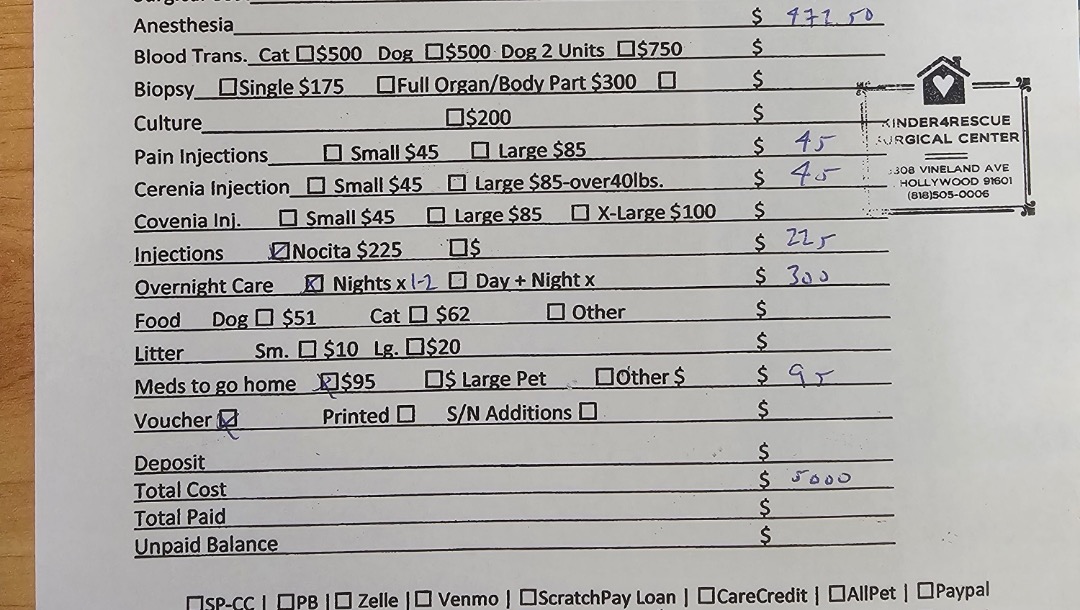 Anesthesia $ 472.50
Blood Trans. Cat ☐$500 Dog ☐$500 Dog 2 Units ☐$750 $
Biopsy ☐Single $175 ☐Full Organ/Body Part $300 ☐ $
Culture ☐$200 $
Pain Injections ☐ Small $45 ☐ Large $85 $ 45
Cerenia Injection ☐ Small $45 ☐ Large $85-over40lbs. $ 45
Covenia Inj. ☐ Small $45 ☐ Large $85 ☐ X-Large $100 $
Injections ☑Nocita $225 ☐$ $ 225
Overnight Care ☒ Nights x 1-2 ☐ Day + Night x $ 300
Food Dog ☐ $51 Cat ☐ $62 ☐ Other $
Litter Sm. ☐ $10 Lg. ☐$20 $
Meds to go home ☒$95 ☐$ Large Pet ☐Other $ $ 95
Voucher ☒ Printed ☐ S/N Additions ☐ $
Deposit $
Total Cost $ 5000
Total Paid $
Unpaid Balance $
☐SP-CC | ☐PB |☐ Zelle |☐ Venmo | ☐ScratchPay Loan | ☐CareCredit | ☐AllPet | ☐Paypal
KINDER4RESCUE
SURGICAL CENTER
308 VINELAND AVE
HOLLYWOOD 91601
(818)505-0006